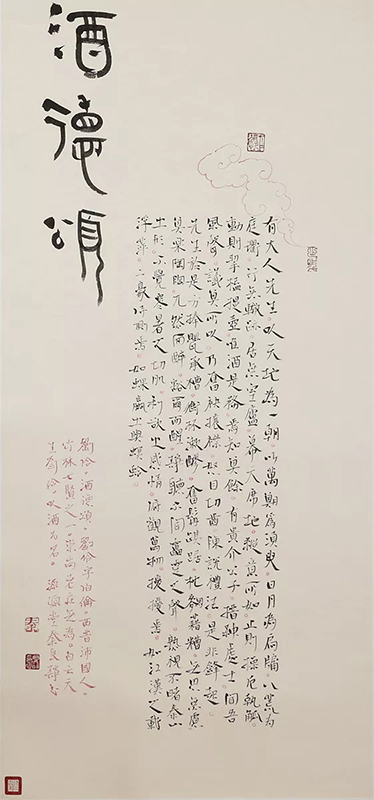 酒德頌
有大人先生以天地為一朝以萬期為須臾日月為扃牖八荒為
庭衢行無轍跡居無室廬幕天席地縱意所如止則操卮執觚
動則挈榼提壺唯酒是務焉知其餘有貴介公子搢紳處士聞吾
風聲議其所以乃奮袂攘襟怒目切齒陳說禮法是非鋒起
先生於是方捧甖承槽銜杯漱醪奮髯踑踞枕麴藉糟無思無慮
其樂陶陶兀然而醉豁爾而醒靜聽不聞雷霆之聲熟視不睹泰山
之形不覺寒暑之切肌利欲之感情俯觀萬物擾擾焉如江漢之載
浮萍二豪侍側焉如蜾蠃之與螟蛉
劉伶酒德頌。劉伶字伯倫。西晉沛國人。
竹林七賢之一。崇尚老莊無為。自云天
生劉伶以酒為名。